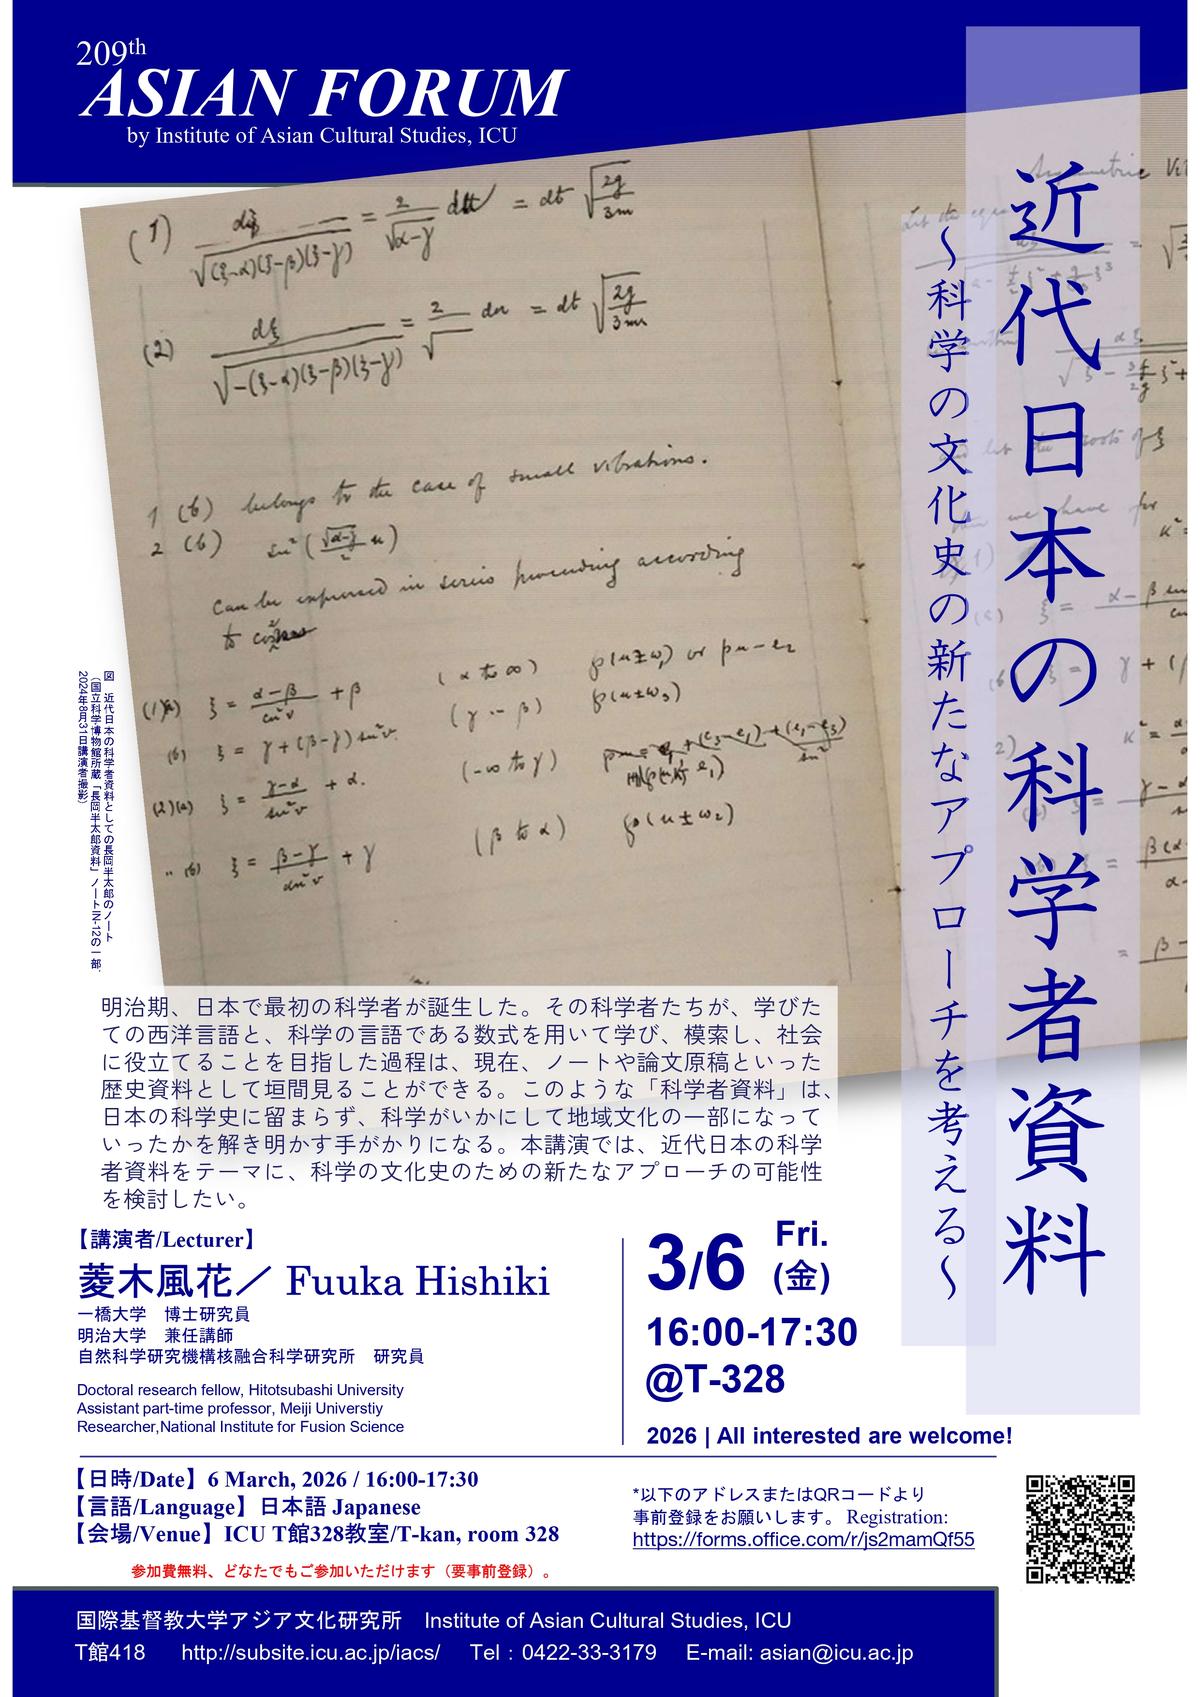 209th
ASIAN FORUM
by Institute of Asian Cultural Studies, ICU
近代日本の科学者資料
～科学の文化史の新たなアプローチを考える～
(1)
(2)
1 (b) belongs to the case of small vibrations.
2 (b)
can be expressed in series proceeding according
to
図 近代日本の科学者資料としての長岡半太郎のノート
(国立科学博物館所蔵「長岡半太郎資料」ノートN-12の一部、
2024年8月31日講演者撮影)
明治期、日本で最初の科学者が誕生した。その科学者たちが、学びた
ての西洋言語と、科学の言語である数式を用いて学び、模索し、社会
に役立てることを目指した過程は、現在、ノートや論文原稿といった
歴史資料として垣間見ることができる。このような「科学者資料」は、
日本の科学史に留まらず、科学がいかにして地域文化の一部になって
いったかを解き明かす手がかりになる。本講演では、近代日本の科学
者資料をテーマに、科学の文化史のための新たなアプローチの可能性
を検討したい。
【講演者/Lecturer】
菱木風花／ Fuuka Hishiki
一橋大学　博士研究員
明治大学　兼任講師
自然科学研究機構核融合科学研究所　研究員
Doctoral research fellow, Hitotsubashi University
Assistant part-time professor, Meiji Universtiy
Researcher,National Institute for Fusion Science
3/6 Fri. (金)
16:00-17:30
@T-328
2026 | All interested are welcome!
【日時/Date】6 March, 2026 / 16:00-17:30
【言語/Language】日本語 Japanese
【会場/Venue】ICU T館328教室/T-kan, room 328
参加費無料、どなたでもご参加いただけます（要事前登録）。
*以下のアドレスまたはQRコードより
事前登録をお願いします。 Registration:
https://forms.office.com/r/js2mamQf55
国際基督教大学アジア文化研究所　Institute of Asian Cultural Studies, ICU
T館418　http://subsite.icu.ac.jp/iacs/　Tel：0422-33-3179　E-mail: asian@icu.ac.jp